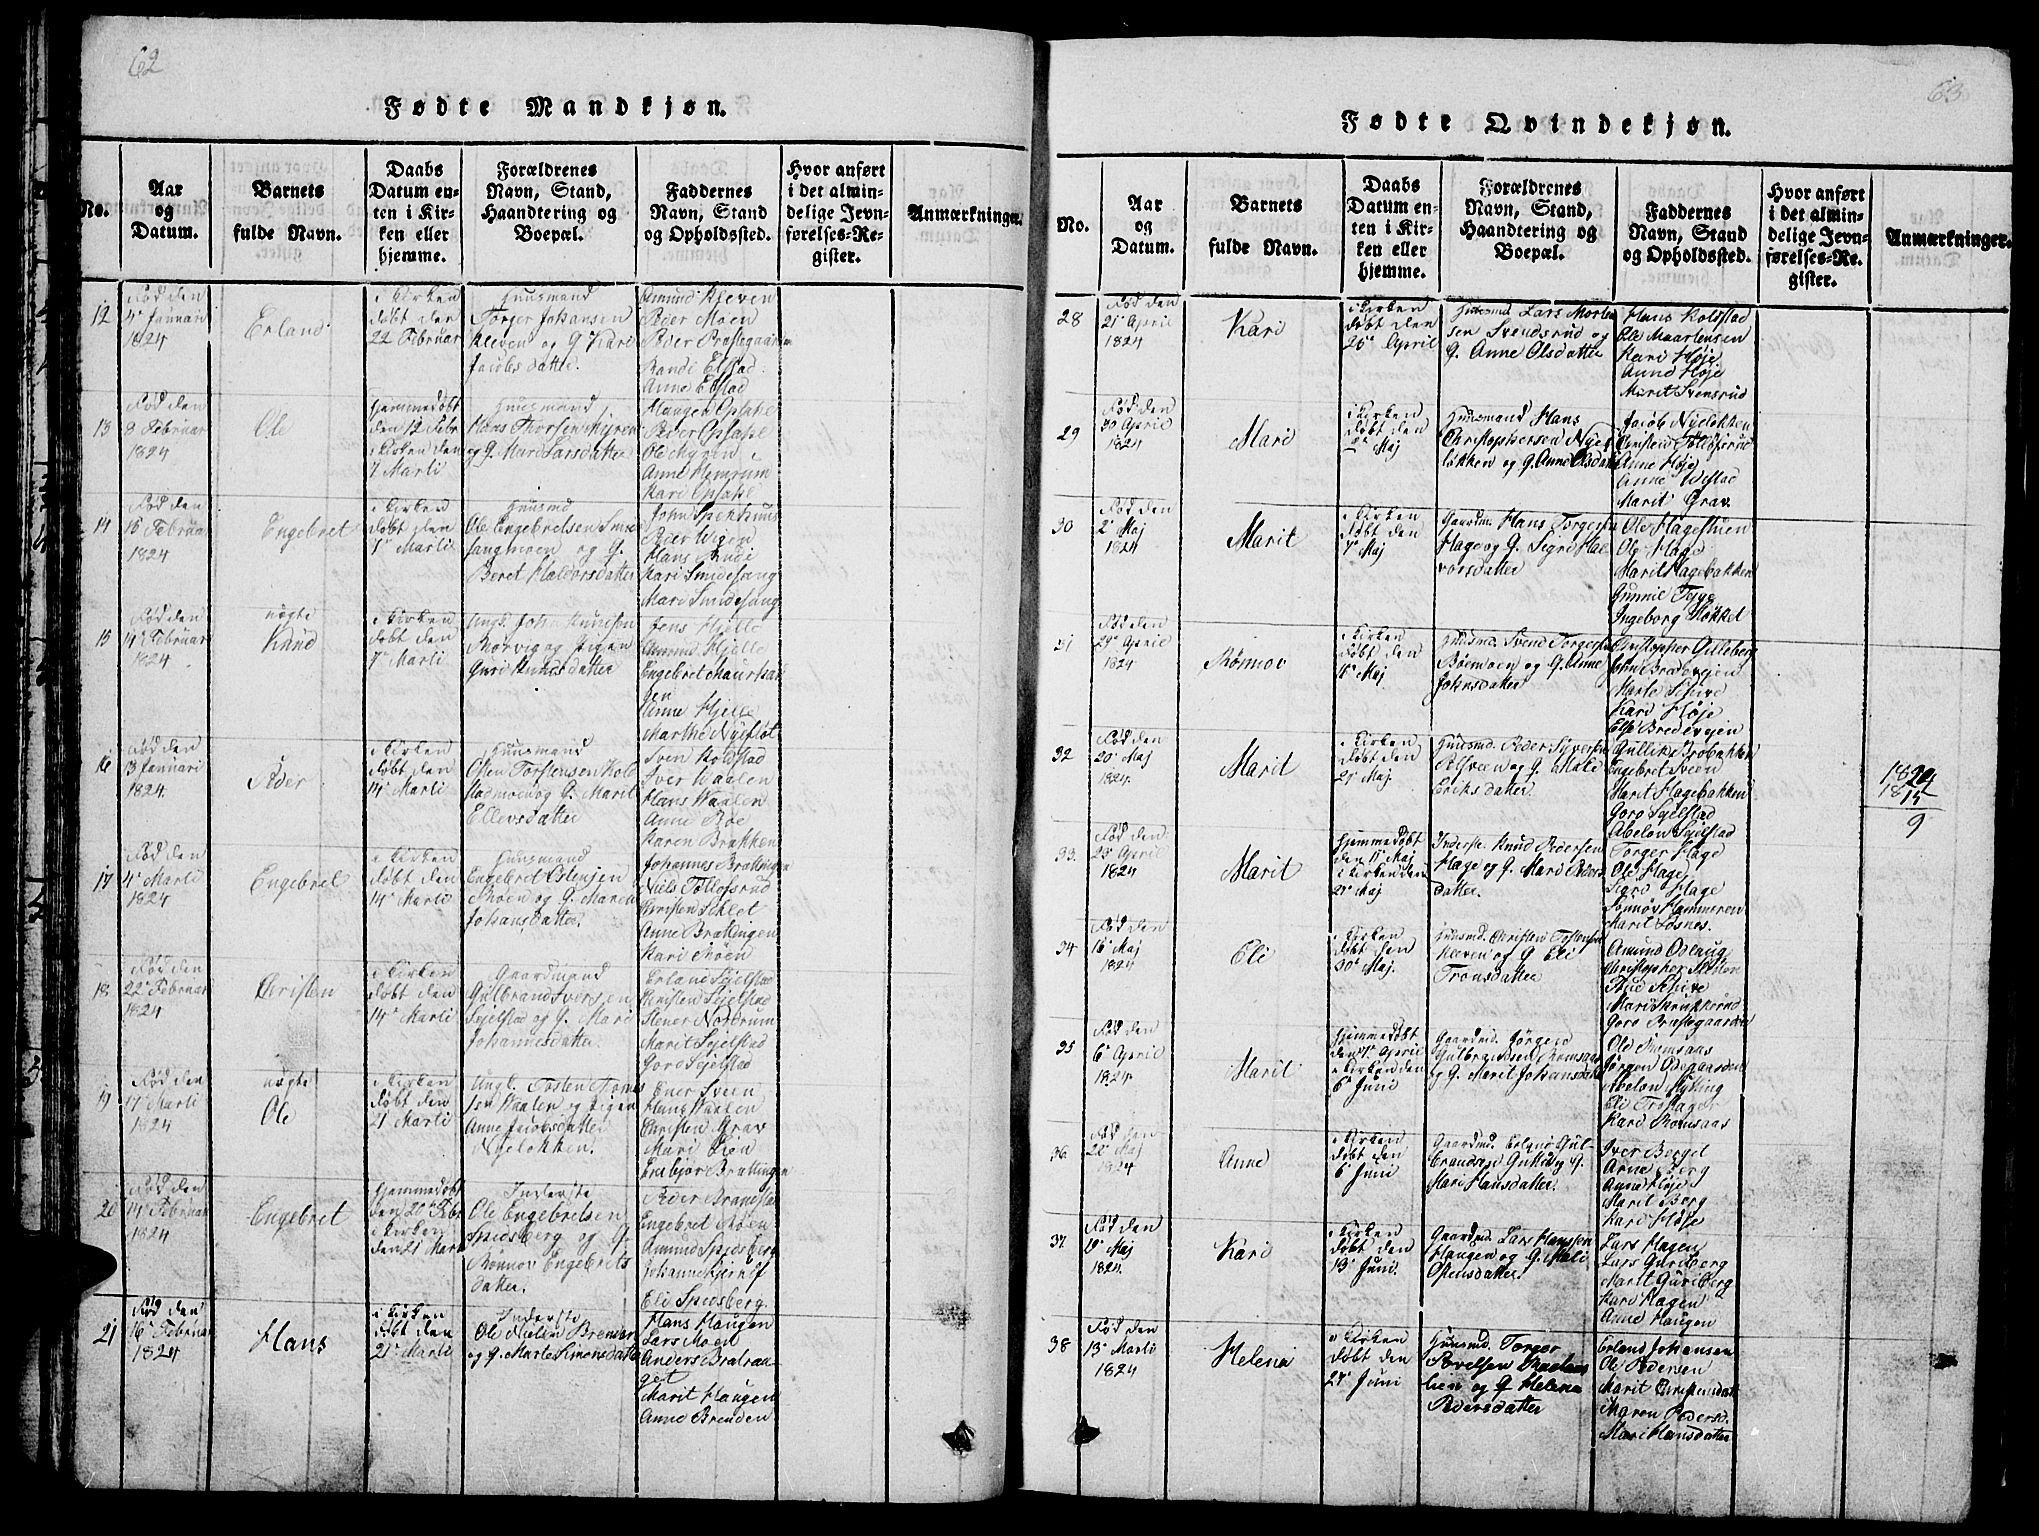 62
Fødte Mandkjøn.
No.
Aar
og
Datum.
Barnets
fulde Navn.
Daabs
Datum en-
ten i Kir-
ken eller
hjemme.
Forældrenes
Navn, Stand,
Haandtering og
Boepæl.
Faddernes
Navn, Stand
og Opholdssted.
Hvor anført
i det almin-
delige Jevn-
førelses-Re-
gister.
Anmærkninger.
12
Fød den
4de Januari
1824
Erland
i Kirken
døbt den
22 Februar
Huusmand
Torger Johansen
Kleven og G. Kari
Jacobsdatter.
Amund Kleven
Peder Moen
Peder Præstegaarden
Randi Elstad
Anne Elstad
13
Fød den
8 Februar
1824
Ole
Hjemmedøbt
den 12 Febr
i Kirken den
7 Marti
Huusmand
Hans Thorsen Myren
og G. Mari Larsdatter
Maagen Opsahl
Peder Opsahl
Ole Myren
Anne Hemrum
Kari Opsahl
14
Fød den
15 Februar
1824
Engebret
i Kirken
døbt den
7 Marti
Huusmd
Ole Engebretsen Smee
sangmoen og G.
Beret Haldorsdatter
John
Peder Vigen
Hans
Kari Smedesang
Mari Smedesang
15
Fød den
14 Februar
1824
uægte
Knud
i Kirken
døbt den
7 Marti
Ungk. John Knudsen
og Pigen
Guri
Jens Hjelle
Amund Hjelle
Engebret
gen
Anne Hjelle
Marthe Nyefløt
16
Fød den
13 Januari
1824.
Peder
i Kirken
døbt den
14 Marti
Huusmand
Osten Torstensen Kold
stadmoen og G. Marit
Ellevsdatter
Sven Koldstad
Iver Waalen
Hans Waalen
Anne Bøe
Karen Brækken
17
Fød den
4 Marti
1824
Engebret
i Kirken
døbt den
14 Marti
Huusmand
Engebret Estensen
Moen og G. Maren
Johansdatter.
Johannes Brattingen
Niels Tollofsrud
Christen
Anne Brattingen
Kari
18
Fød den
22 Februar
1824
Christen
i Kirken
døbt den
14 Marti
Gaardmand
Gulbrand Iversen
Sylstad og G. Mari
Johannesdatter.
Erland Sylstad
Christen Sylstad
Stener Nordrum
Marit Sylstad
Goro Sylstad
19
Fød den
17 Marti
1824
uægte
Ole
i Kirken
døbt den
21 Marti
Ungk. Torsten
sen Waalen og Pigen
Anne Jacobsdatter
Nyeløkken.
Sveen
Hans Waalen
Christen Grav
Mari Lien
Brattingen
20
Fød den
14 Februar
1824
Engebret
Hjemmedøbt
den 20 Febr
i Kirken
den 21 Marti
Inderste
Ole Engebretsen
Spidsberg og G.
Rønnov Engebrets
datter.
Peder Brandstad
Engebret Moen
Amund Spidsberg
Johanne
Eli Spidsberg
21
Fød den
16 Februar
1824
Hans
i Kirken
døbt den
21 Marti
Inderste
Ole Nielsen Brenden
og G. Marte Simensdatter
Hans Haugen
Lars Moen
Anders Bratran-
get
Marit Haugen
Anne Brenden
63
Fødte Qvindekjøn.
No.
Aar
og
Datum.
Barnets
fulde Navn.
Daabs
Datum en-
ten i Kir-
ken eller
hjemme.
Forældrenes
Navn, Stand,
Haandtering og
Boepæl.
Faddernes
Navn, Stand
og Opholdssted.
Hvor anført
i det almin-
delige Jevn-
førelses-Re-
gister.
Anmærkninger.
28
Fød den
21 April
1824
Kari
i Kirken
døbt den
25 April
Huusmd Lars Morten
sen Svendsrud og
G. Anne Olsdatter
Hans Kolstad
Ole Maartensen
Kari Høje
Anne Høje
Marit Svensrud
29
Fød den
30 April
1824
Mari
i Kirken
døbt den
2 Maj
Huusmand Hans
Christophersen Nye
løkken og G. Anne Olsdatt
Jacob Nyeløkken
Christen Tollofsrud
Anne Høje
Anne Widstad
Marit Grav
30
Fød den
2 Maj
1824
Marit
i Kirken
døbt den
7 Maj
Gaardm. Hans Torgersen
Hage og G. Sigri Hal
vorsdatter
Ole Hagestuen
Ole Hage
Marit Hagebakken
Gunnil Teige
Ingeborg Støkket
31
Fød den
29 April
1824
Rønnov
i Kirken
døbt den
Maj
Huusmd. Svend Torgersen
Bøemoen og G. Anne
Johnsdatter
Christopher Gilleberg
John Bredevejen
Marte Schive
Kari Høje
Else Bredevejen
32
Fød den
20 Maj
1824.
Marit
i Kirken
døbt den
27 Maj
Huusmd. Peder Syversen
og G. Mali
Eriksdatter.
Gullik Brobakken
Engebret Sveen
Marit Hagebakken
Goro Sylstad
Abelon Sylstad
33.
Fød den
25 April
1824
Marit
Hjemmedøbt
den 1 Maj
i Kirken den
27 Maj
Inderste Knud Pedersen
Hage og G. Mari Peders
datter.
Torger Hage
Ole Hage
Sigri Hage
Rønnov Hammeren
Marit Løsnes.
34
Fød den
16 Maj
1824
Eli
i Kirken
døbt den
30 Maj.
Huusmd. Christen Torstensen
Kleven og G. Eli
Tronsdatter
Amund Odlaug
Christopher
Schive
Mari
Goro Præstegaarden
35
Fød den
6 April
1824.
Marit
Hjemmedøbt
den 7 April
i Kirken den
6 Juni
Gaardmd. Jørgen
Gulbrandsen Romsaas
og G. Marit Johansdatt
Ole Romsaas
Jørgen Odegaarden
Abelon Nytting
Eli
Kari Romsaas
36.
Fød den
22 Maj
1824
Anne
i Kirken
døbt den
6 Juni
Gaardmd. Erland Gul-
brandsen og G.
Mari Hansdatter.
Iver Berget
Arne Berg
Anne Høje
Marit Berg
Kari Høje
37.
Fød den
19 Maj
1824.
Kari
i Kirken
døbt den
13 Juni
Gaardmd. Lars Hanssen
Haugen og G. Mali
Ostensdatter.
Lars Hagen
Lars Guriberg
Marit Guriberg
Kari Hagen
Anne Haugen
38
Fød den
13 Marti
1824
Helena
i Kirken
døbt den
27 Juni
Huusmd. Torger
Povelsen
lien og G Helena
Pedersdatter
Erland Johansen
Ole Pedersen
Marit Christensdatt
Maren Pedersd.
Mari Hansdatter
1824
1815
9